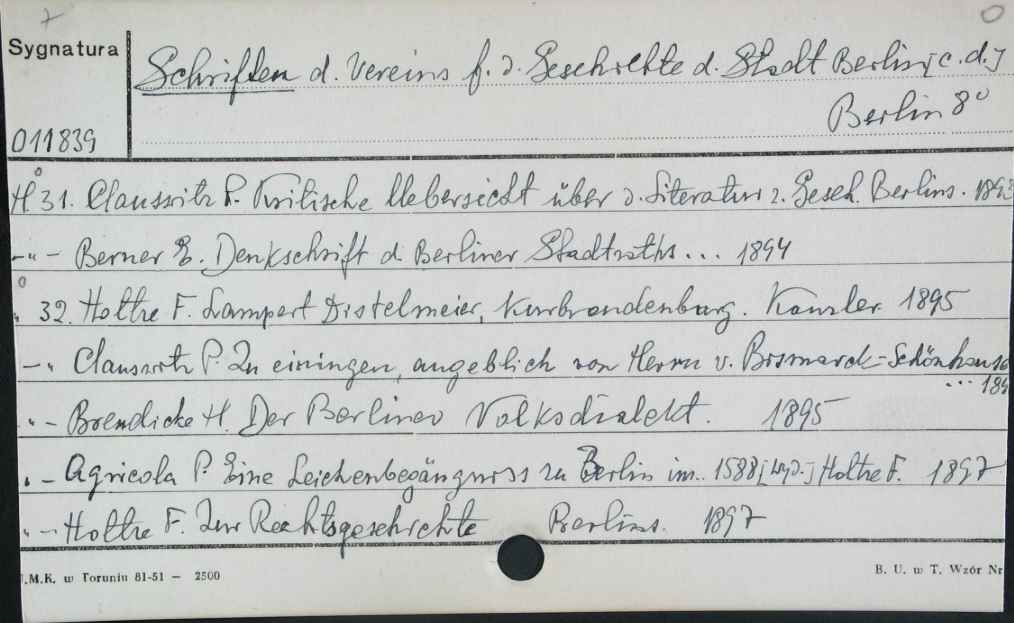 7 0
Sygnatura
Schriften d. Vereins f. d. Geschichte d. Stadt Berlin [c. d.]
Berlin 8°
011839
H° 31. Clausswitz P. Kritische Uebersicht über d. Literatur z. Gesch. Berlins. 1893
-"- Berner E. Denkschrift d. Berliner Stadtraths... 1894
" 32. Holtze F. Lampert Distelmeier, Kurbrandenburg. Kanzler. 1895
-" Clausswitz P. Zu einingen, angeblich von Herrn v. Bismarck-Schönhause
... 189
"- Brendicke H. Der Berliner Volksdialekt. 1895
"- Agricola P. Eine Leichenbegängniss zu Berlin im.. 1588 [wyd.] Holtze F. 1897
"- Holtze F. Zur Rechtsgeschichte Berlins. 1897
.M.K. w Toruniu 81-51 — 2500
B. U. w T. Wzór Nr